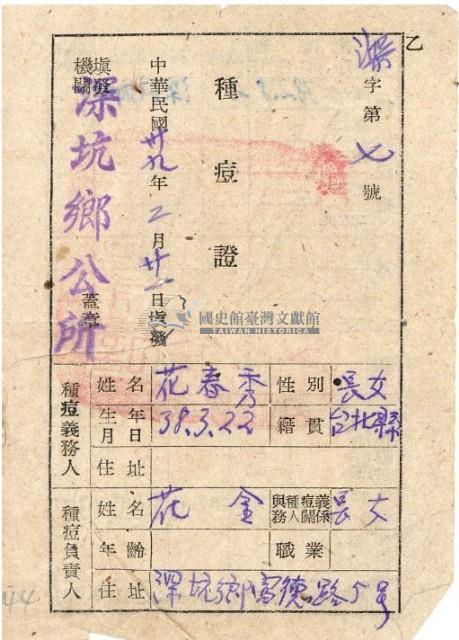 乙
深字第七號
種痘證
中華民國卅九年二月廿一日填發
填發機關 深坑鄉公所 蓋章
國史館臺灣文獻館
TAIWAN HISTORICA
種痘義務人
姓名 花春秀 性別 長女
生年月日 38.3.22 籍貫 台北縣
住址
種痘負責人
姓名 花金 與種痘義務人關係 長女
年齡 職業
住址 深坑鄉富德路5号
44